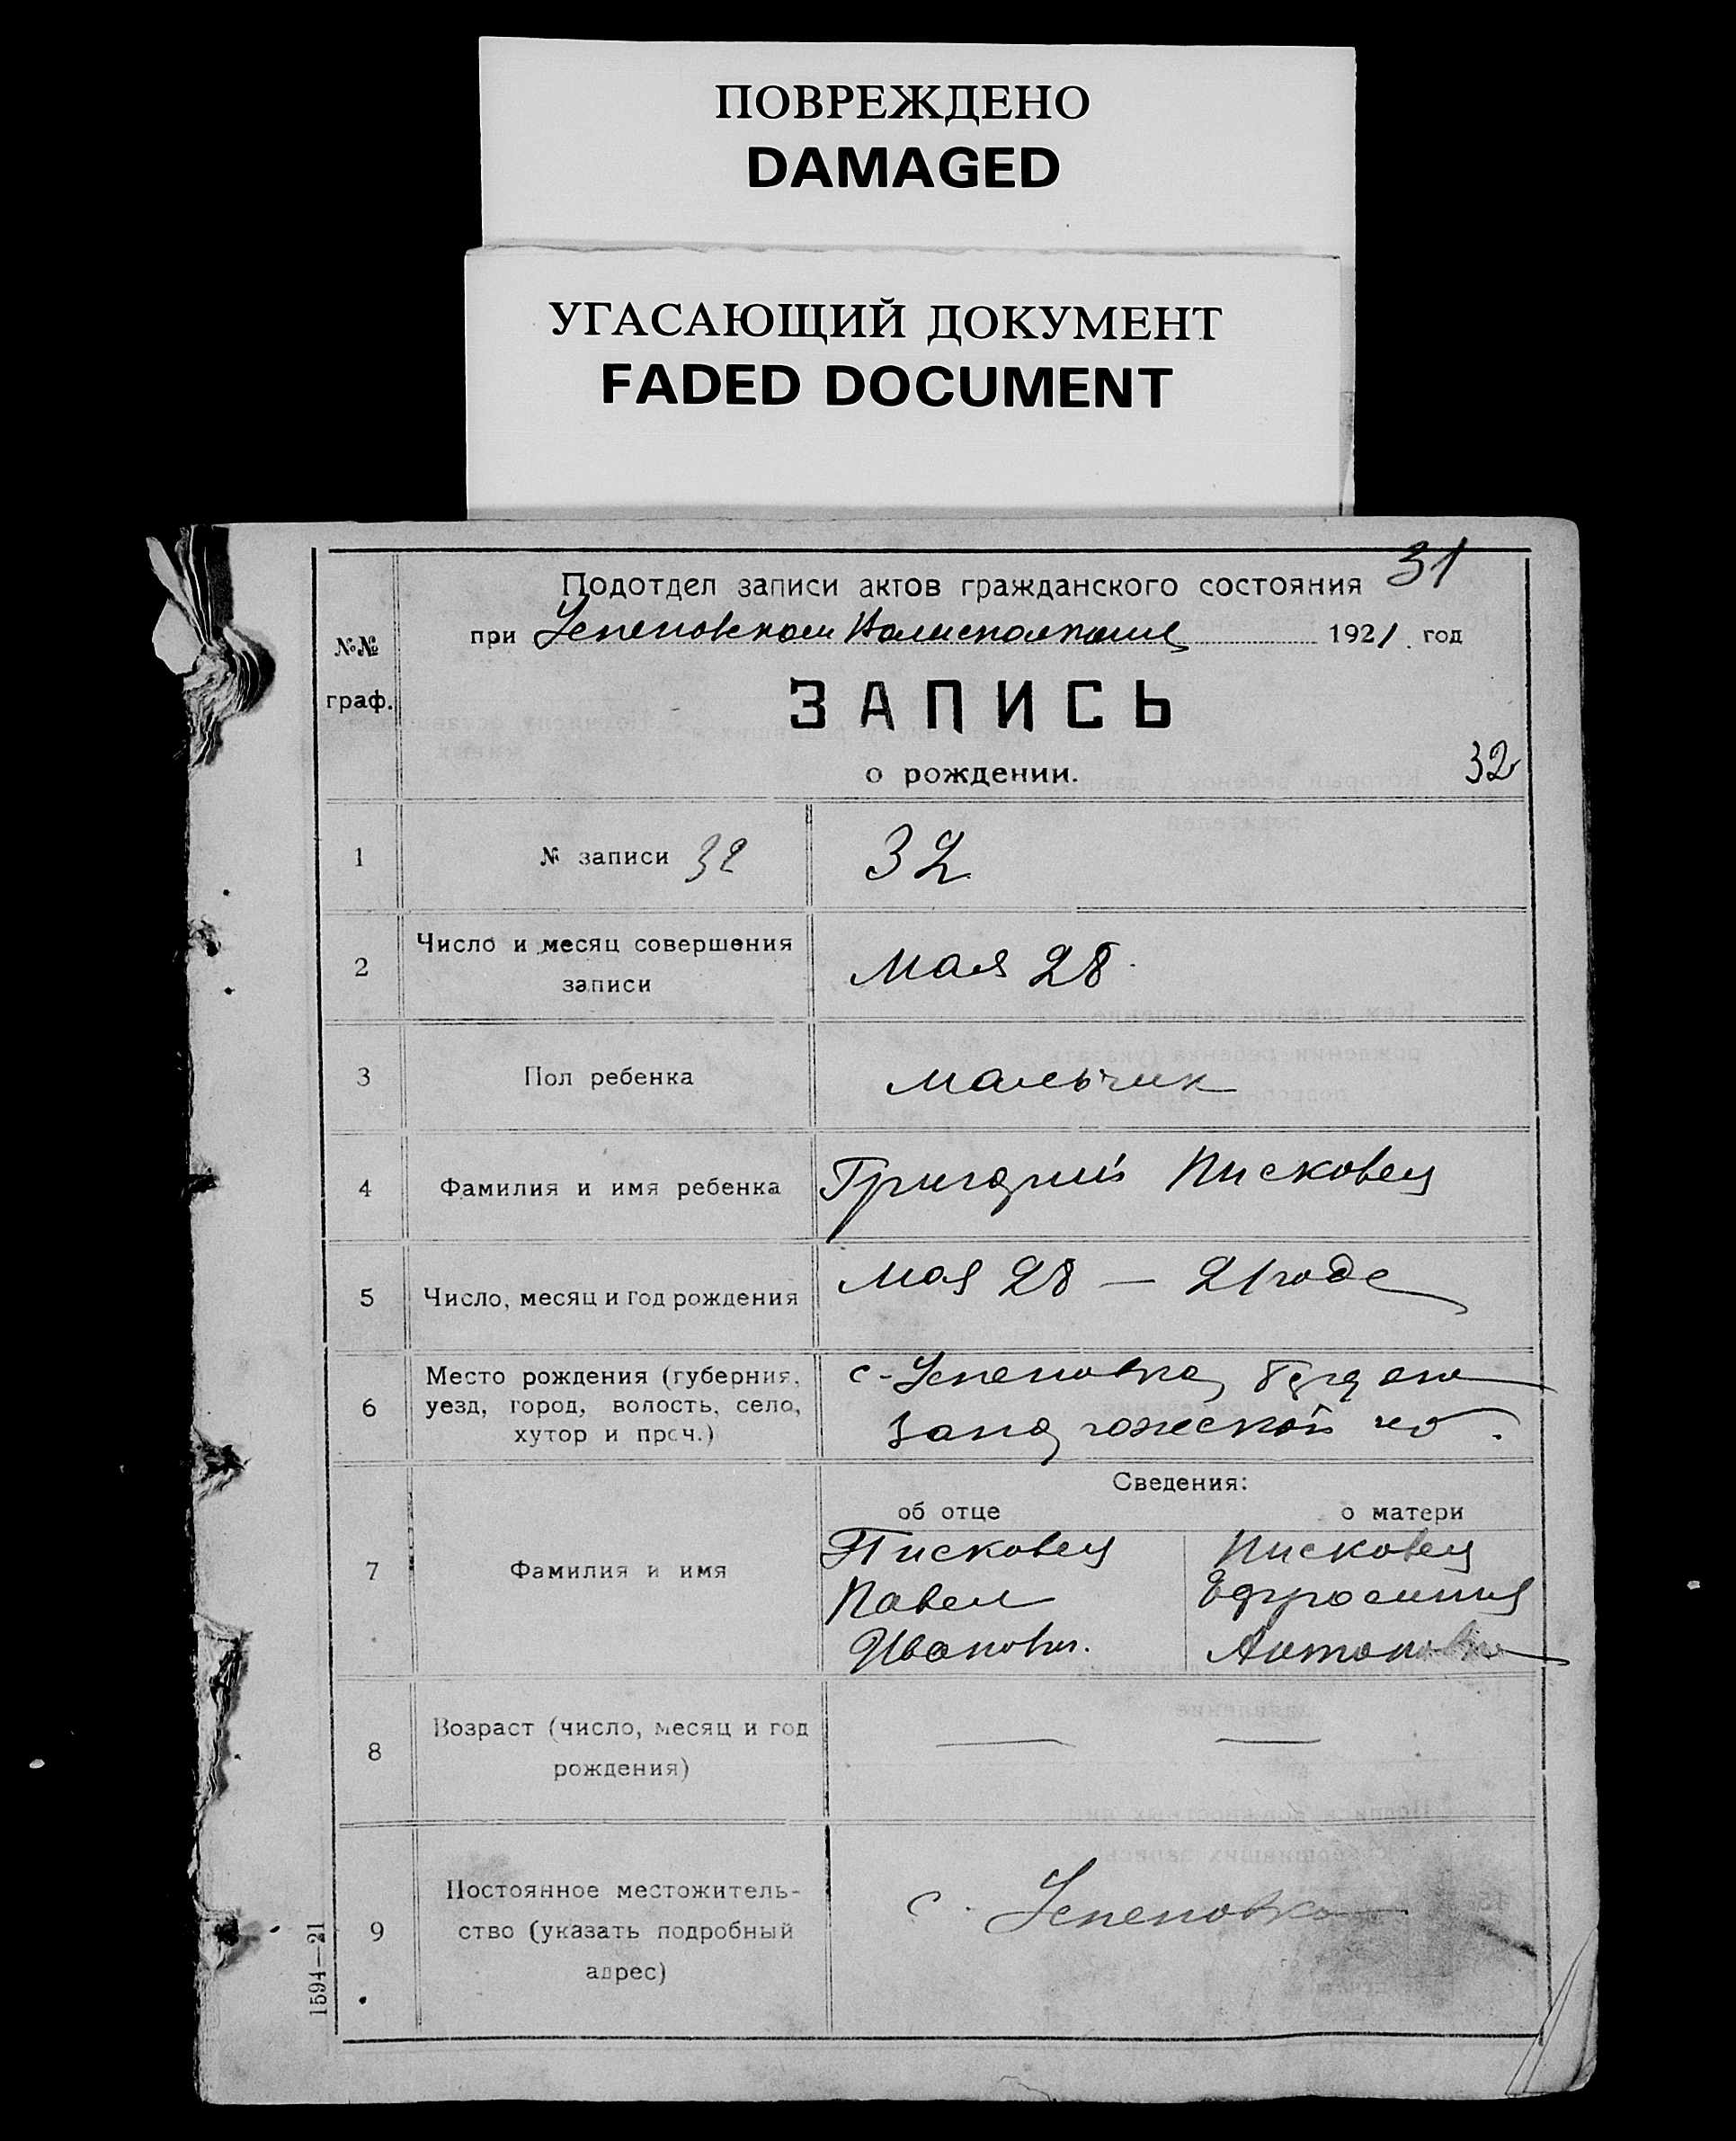 ПОВРЕЖДЕНО
DAMAGED
УГАСАЮЩИЙ ДОКУМЕНТ
FADED DOCUMENT
31
Подотдел записи актов гражданского состояния
при Успеновском Волисполкоме 1921. год
№№
граф.
ЗАПИСЬ
о рождении.
32
1 № записи 32 32
2 Число и месяц совершения
записи
Мая 28
3 Пол ребенка мальчик
4 Фамилия и имя ребенка Григорий Писковец
5 Число, месяц и год рождения Мая 28 — 21 года
6 Место рождения (губерния,
уезд, город, волость, село,
хутор и проч.)
с-Успеновка
Сведения:
об отце о матери
7 Фамилия и имя
Писковец Писковец
Павел Ефросиния
Иванович. Антоновна
8 Возраст (число, месяц и год
рождения)
— —
9 Постоянное местожитель-
ство (указать подробный
адрес)
с. Успеновка
1594—21